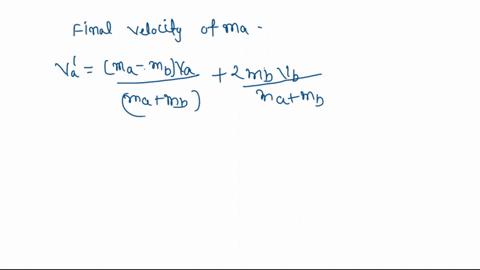 Final velocity of ma -
Va' = (ma - mb)Va / (ma + mb) + 2mbVb / ma + mb